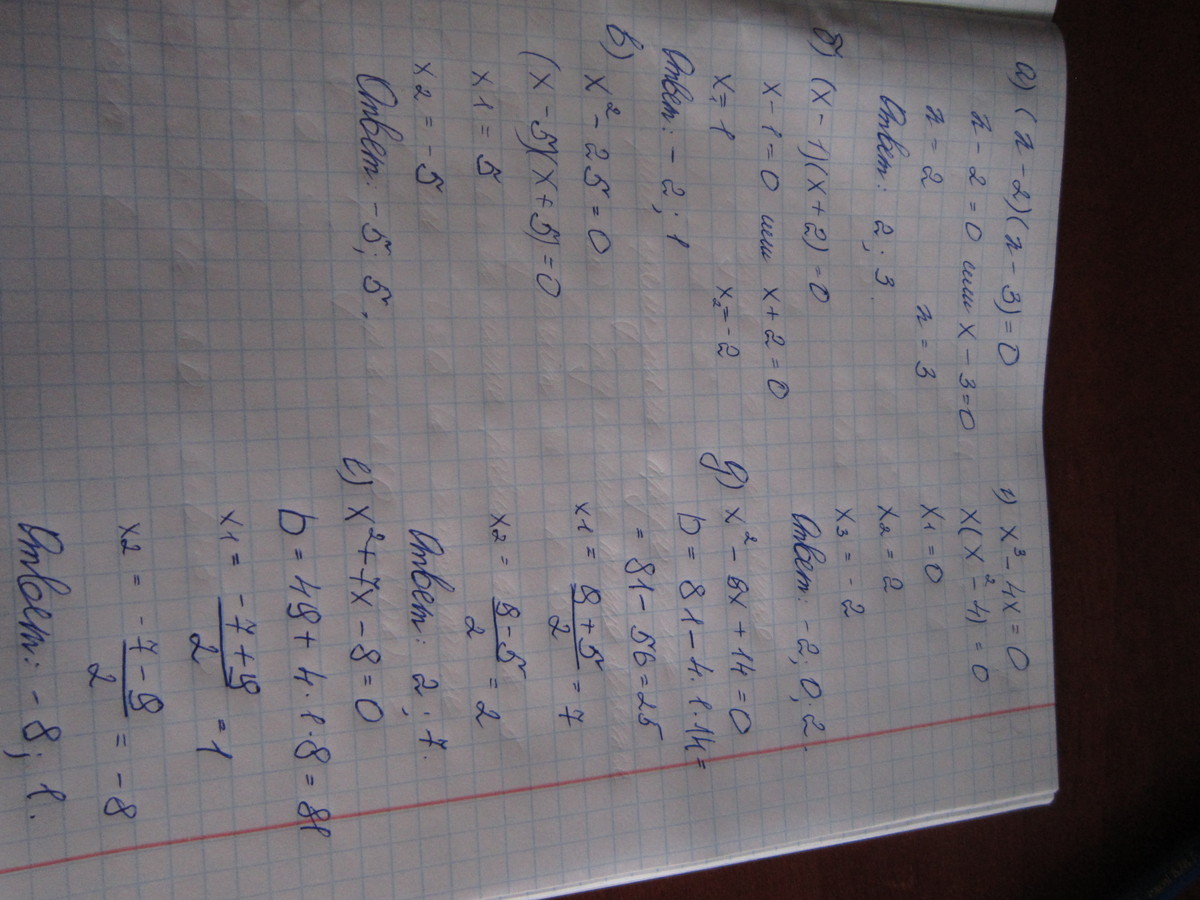 а) (x - 2)(x - 3) = 0
x - 2 = 0 или x - 3 = 0
x = 2 x = 3
Ответ: 2; 3.
б) (x - 1)(x + 2) = 0
x - 1 = 0 или x + 2 = 0
x₁ = 1 x₂ = -2
Ответ: -2; 1
в) x² - 25 = 0
(x - 5)(x + 5) = 0
x1 = 5
x2 = -5
Ответ: -5; 5.
г) x³ - 4x = 0
x(x² - 4) = 0
x1 = 0
x2 = 2
x3 = -2
Ответ: -2; 0; 2.
д) x² - 9x + 14 = 0
D = 81 - 4 · 1 · 14 =
= 81 - 56 = 25
x1 = (9 + 5)/2 = 7
x2 = (9 - 5)/2 = 2
Ответ: 2; 7.
е) x² + 7x - 8 = 0
D = 49 + 4 · 1 · 8 = 81
x1 = (-7 + 9)/2 = 1
x2 = (-7 - 9)/2 = -8
Ответ: -8; 1.